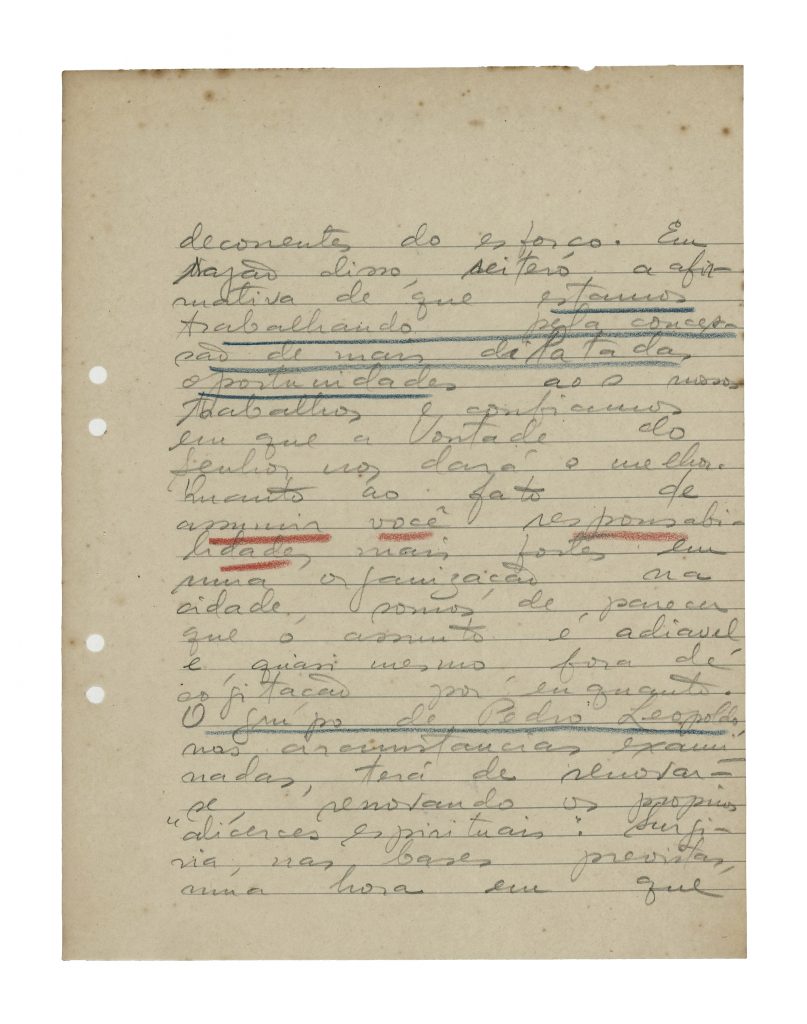 decorrentes do esforço. Em
razão disso, reitero a afir-
mativa de que estamos
trabalhando pela conces-
são de mais dilatadas
oportunidades aos nossos
trabalhos e confiamos
em que a Vontade do
Senhor nos dará o melhor.
Quanto ao fato de
assumir você responsabi-
lidades mais fortes em
uma organização na
cidade, somos de parecer
que o assunto é adiavel
e quasi mesmo fora de
cogitação por enquanto.
O grupo de Pedro Leopoldo,
nas circunstancias exami
nadas, terá de renovar-
se, renovando os proprios
"alicerces espirituais". Surgi-
ria, nas bases previstas,
numa hora em que